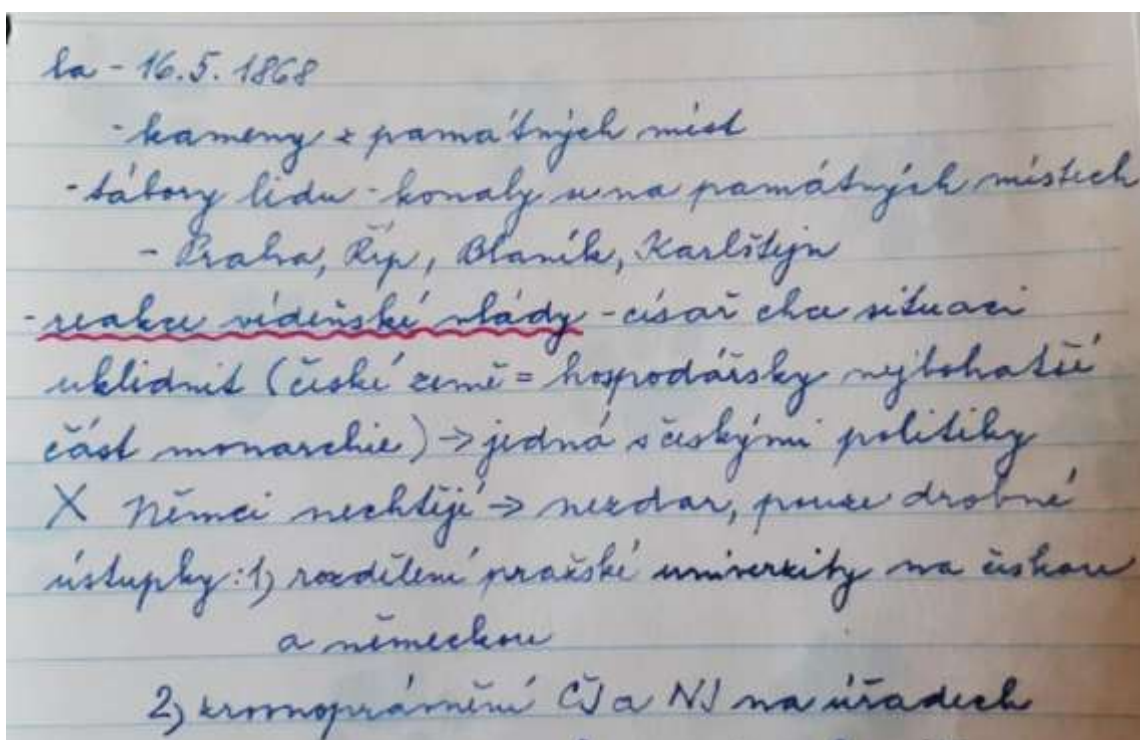 la - 16.5.1868
- kameny z památných míst
- tábory lidu - konaly se na památných místech
- Praha, Říp, Blaník, Karlštejn
- reakce vídeňské vlády - císař chce situaci
uklidnit (české země = hospodářsky nejbohatší
část monarchie) → jedná s českými politiky
X Němci nechtějí → nezdar, pouze drobné
ústupky: 1) rozdělení pražské univerzity na českou
a německou
2) zrovnoprávnění ČJ a NJ na úřadech